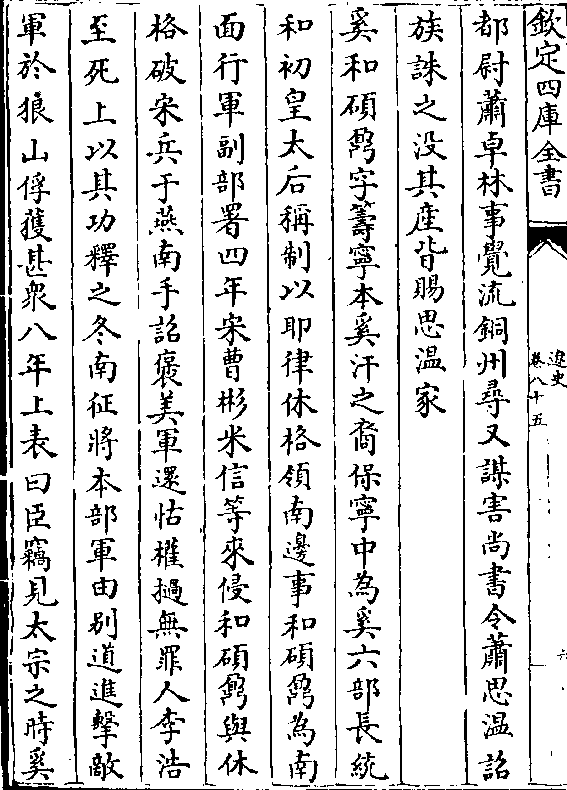 欽定四庫全書
遼史
卷八十五
六
都尉蕭卓林事覺流銅州尋又謀害尚書令蕭思温詔
族誅之没其産皆賜思温家
奚和碩鼐字籌寧本奚汗之裔保寧中為奚六部長統
和初皇太后稱制以耶律休格領南邊事和碩鼐為南
面行軍副部署四年宋曹彬米信等來侵和碩鼐與休
格破宋兵于燕南手詔褒美軍還怙權撾無罪人李浩
至死上以其功釋之冬南征將本部軍由别道進擊敵
軍於狼山俘獲甚衆八年上表曰臣竊見太宗之時奚